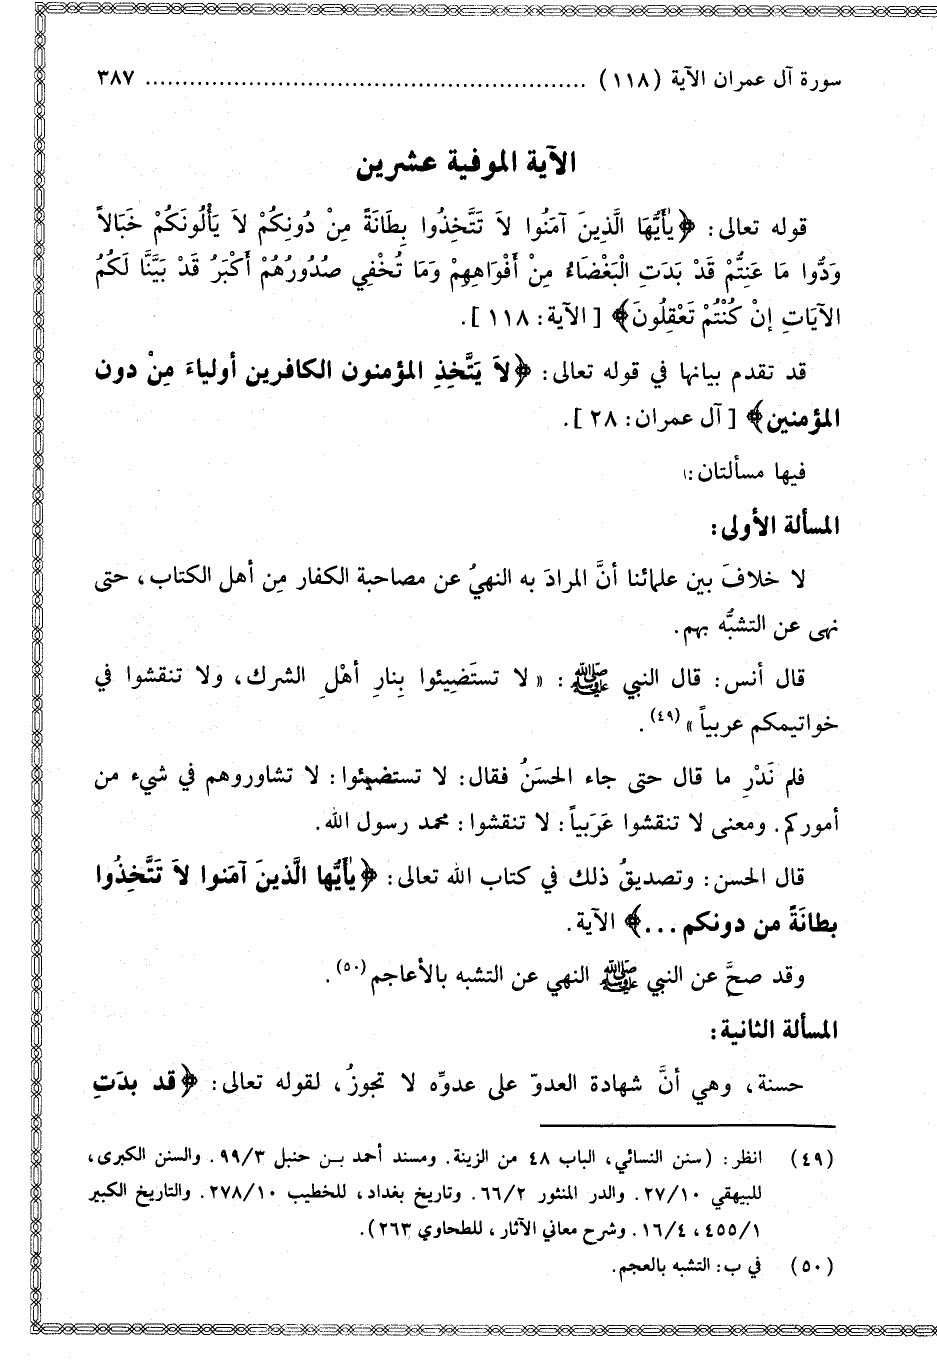 سورة آل عمران الآية (١١٨) ............................................................ ٣٨٧
الآية الموفية عشرين
قوله تعالى: ﴿يٰأَيُّهَا الَّذِينَ آمَنُوا لاَ تَتَّخِذُوا بِطَانَةً مِنْ دُونِكُمْ لاَ يَأْلُونَكُمْ خَبَالاً
وَدُّوا مَا عَنِتُّمْ قَدْ بَدَتِ الْبَغْضَاءُ مِنْ أَفْوَاهِهِمْ وَمَا تُخْفِي صُدُورُهُمْ أَكْبَرُ قَدْ بَيَّنَّا لَكُمُ
الآيَاتِ إنْ كُنْتُمْ تَعْقِلُونَ﴾ [الآية: ١١٨].
قد تقدم بيانها في قوله تعالى: ﴿لاَ يَتَّخِذِ المؤمنون الكافرين أولياءَ مِنْ دون
المؤمنين﴾ [آل عمران: ٢٨].
فيها مسألتان:
المسألة الأولى:
لا خلافَ بين علمائنا أنَّ المرادَ به النهيُ عن مصاحبة الكفار مِن أهل الكتاب، حتى
نهى عن التشبُّه بهم.
قال أنس: قال النبي ﷺ: «لا تستَضِيئوا بِنارِ أهْلِ الشرك، ولا تنقشوا في
خواتيمكم عربياً»(٤٩).
فلم نَدْرِ ما قال حتى جاء الحسَنُ فقال: لا تستضيئوا: لا تشاوروهم في شيء من
أموركم. ومعنى لا تنقشوا عَرَبياً: لا تنقشوا: محمد رسول الله.
قال الحسن: وتصديقُ ذلك في كتاب الله تعالى: ﴿يٰأَيُّها الَّذينَ آمَنوا لاَ تَتَّخِذُوا
بطانَةً من دونكم...﴾ الآية.
وقد صحَّ عن النبي ﷺ النهي عن التشبه بالأعاجم(٥٠).
المسألة الثانية:
حسنة، وهي أنَّ شهادة العدوّ على عدوِّه لا تجوزُ، لقوله تعالى: ﴿قد بدَتِ
(٤٩) انظر: (سنن النسائي، الباب ٤٨ من الزينة. ومسند أحمد بـن حنبل ٩٩/٣. والسنن الكبرى،
للبيهقي ٢٧/١٠. والدر المنثور ٦٦/٢. وتاريخ بغداد، للخطيب ٢٧٨/١٠. والتاريخ الكبير
٤٥٥/١، ١٦/٤. وشرح معاني الآثار، للطحاوي ٢٦٣).
(٥٠) في ب: التشبه بالعجم.